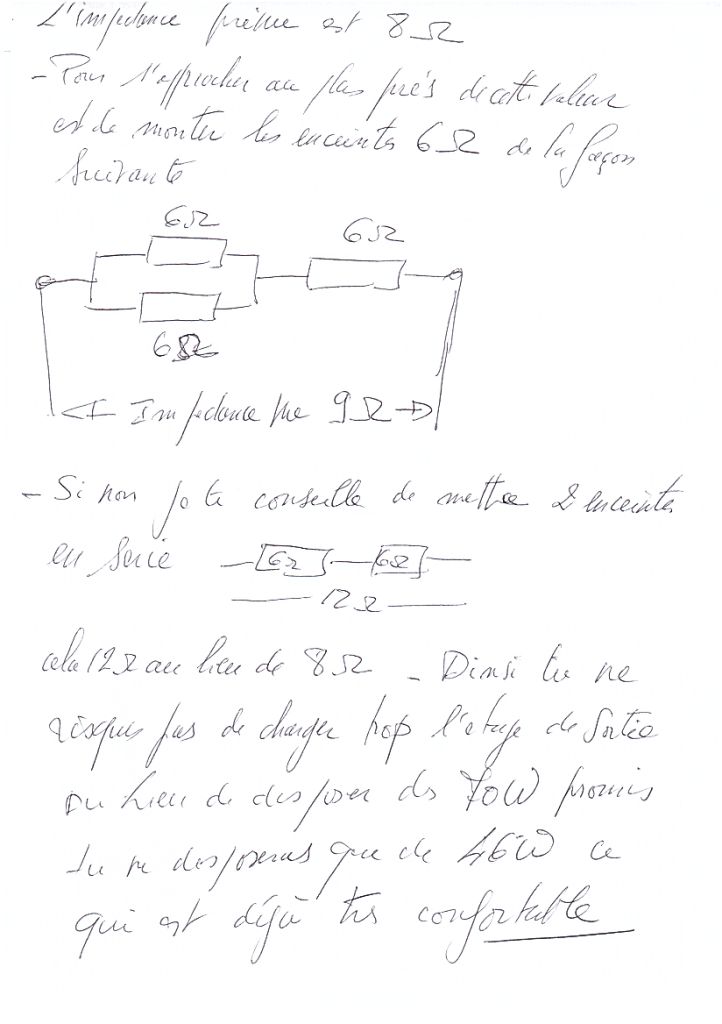 L'impedance prévue est 8Ω
- Pour s'approcher au plus près de cette valeur
est de monter les enceintes 6Ω de la façon
suivante
6Ω
6Ω
6Ω
Impedance 9Ω
- Si non je te conseille de mettre 2 enceintes
en serie
6Ω
6Ω
12Ω
cela 12Ω au lieu de 8Ω - Ainsi tu ne
risques pas de charger trop l'étage de sortie
Au lieu de disposer des 70W promis
tu ne disposeras que de 46W ce
qui est déjà très confortable